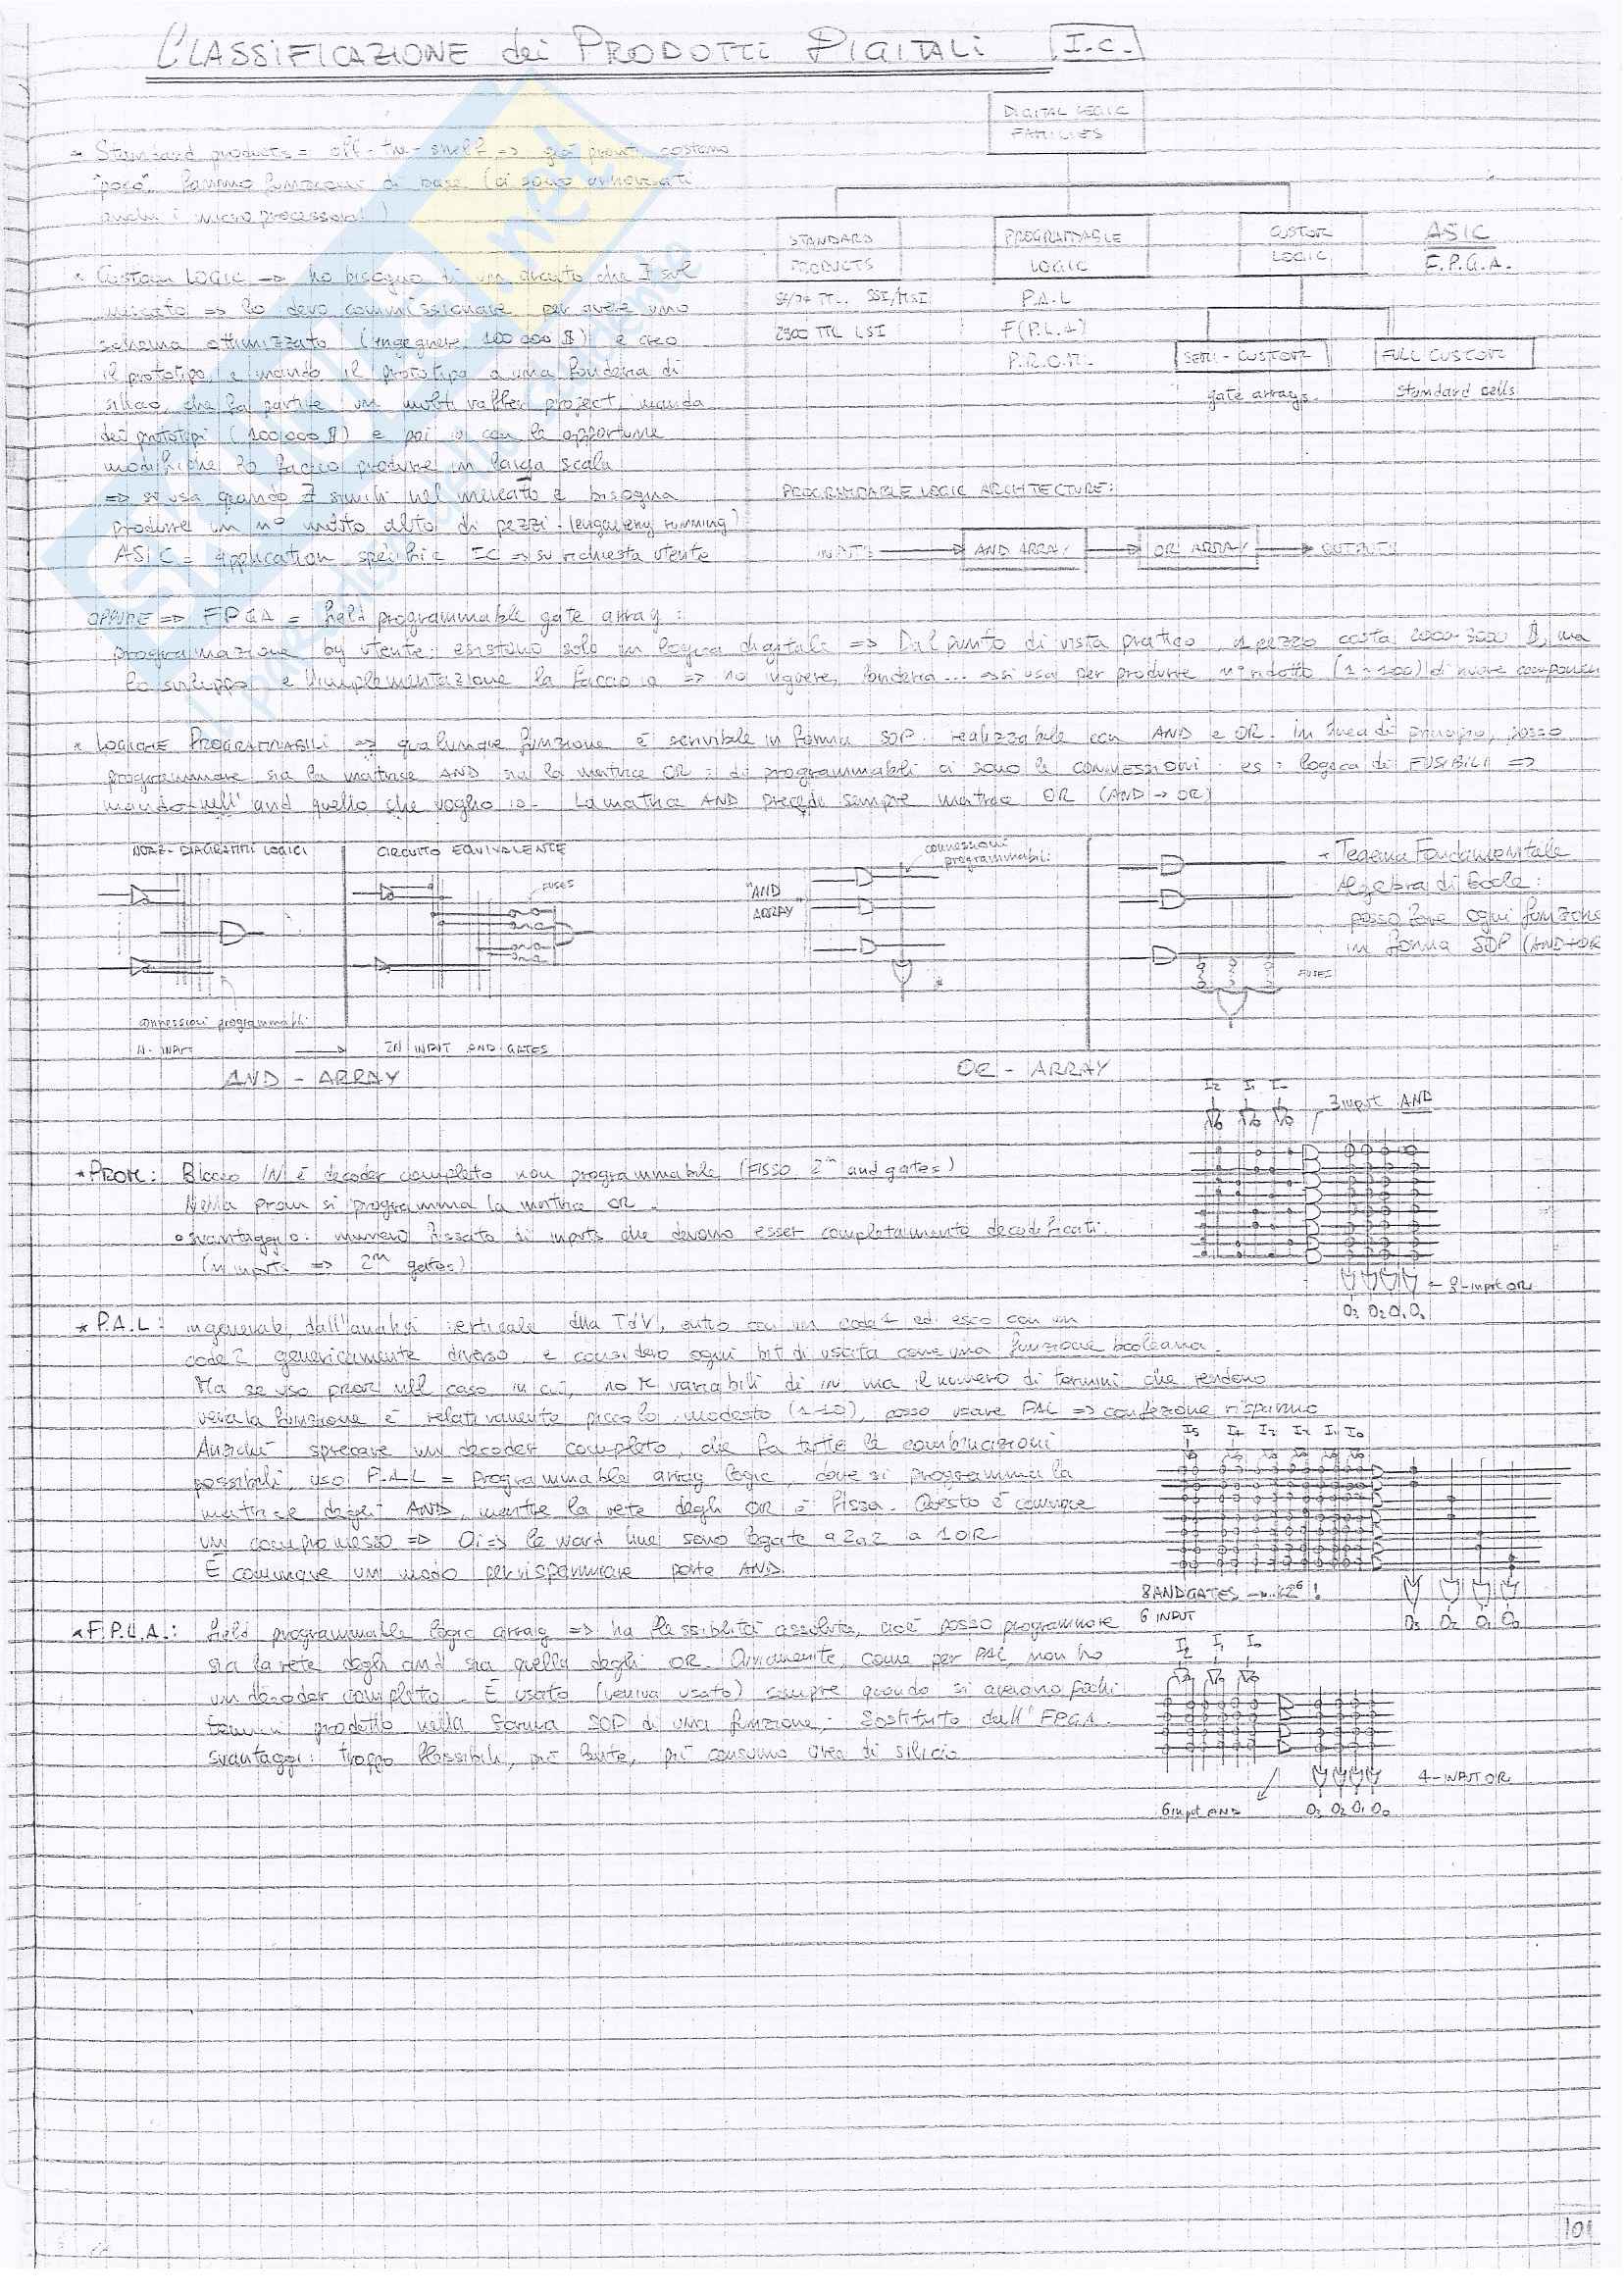 CLASSIFICAZIONE dei PRODOTTI DIGITALI I.C.
DIGITAL LOGIC
FAMILIES
* Standard products = off-the-shelf => già pronti costano
"poco", fanno funzioni di base (ci sono annoverati
anche i microprocessori)
STANDARD
PRODUCTS
54/74 TTL SSI/MSI
2900 TTL LSI
PROGRAMMABLE
LOGIC
P.A.L
F(P.L.A)
P.R.O.M.
CUSTOM
LOGIC
ASIC
F.P.G.A.
SEMI-CUSTOM
gate arrays
FULL CUSTOM
standard cells
* CUSTOM LOGIC => ho bisogno di un circuito che ∄ sul
mercato => lo devo commissionare per avere uno
schema ottimizzato (ingegnere, 100 000 $) e creo
il prototipo, e mando il prototipo a una fonderia di
silicio, che fa partire un multi waffer project, manda
dei prototipi (100,000 $) e poi con le opportune
modifiche lo faccio produrre in larga scala
=> si usa quando ∄ simili nel mercato e bisogna
produrre un n° molto alto di pezzi
ASIC = application specific IC => su richiesta utente
PROGRAMMABLE LOGIC ARCHITECTURE:
INPUTS AND ARRAY OR ARRAY OUTPUTS
OPPURE => FPGA = field programmable gate array:
programmazione by utente; esistono solo in logica digitali => Dal punto di vista pratico, 1 pezzo costa 2000-3000 $, ma
lo sviluppo e l'implementazione la faccio io => no ingegnere, fonderia... => si usa per produrre n° ridotto (1÷100) di nuove componenti
* LOGICHE PROGRAMMABILI => qualunque funzione è scrivibile in forma SOP realizzabile con AND e OR. In linea di principio, posso
programmare sia la matrice AND sia la matrice OR: di programmabili ci sono le CONNESSIONI; es: logica dei FUSIBILI =>
mando nell'and quello che voglio io. La matrice AND precede sempre matrice OR (AND -> OR)
DIAGRAMMI LOGICI
CIRCUITO EQUIVALENTE
FUSES
connessioni programmabili
N-INPUT
2N INPUT AND GATES
AND - ARRAY
"AND
ARRAY
connessioni
programmabili
FUSES
OR - ARRAY
* Teorema Fondamentale
Algebra di Boole:
posso fare ogni funzione
in forma SOP (AND+OR
* PROM: Blocco IN è decoder completo non programmabile (FISSO 2ⁿ and gates)
Nella prom si programma la matrice OR.
svantaggio: numero fissato di inputs che devono esser completamente decodificati.
(n inputs => 2ⁿ gates)
I2 I1 I0
3 input AND
8-input OR
O3 O2 O1 O0
* P.A.L: in generale, dall'analisi verticale della TdV, entro con un code1 ed esco con un
code2 genericamente diverso e considero ogni bit di uscita come una funzione booleana.
Ma se uso prom nel caso in cui, ho K variabili di in ma il numero di termini che rendono
vera la funzione è relativamente piccolo, modesto (1-10), posso usare PAL => confezione risparmio
Anziché sprecare un decoder completo, che fa tutte le combinazioni
possibili, uso P.A.L = programmable array logic, dove si programma la
matrice degli AND, mentre la rete degli OR è fissa. Questo è comunque
un compromesso => Oi => le word line sono legate a 2 a 2 a 1 OR.
È comunque un modo per risparmiare porte AND.
I5 I4 I3 I2 I1 I0
8 AND GATES
6 INPUT
O3 O2 O1 O0
* F.P.L.A.: field programmable logic array => ha flessibilità assoluta, cioè posso programmare
sia la rete degli and sia quella degli OR. Ovviamente, come per PAL, non ho
un decoder completo. È usato (veniva usato) sempre quando si avevano pochi
termini prodotto nella forma SOP di una funzione; Sostituito dall'FPGA.
svantaggi: troppo flessibili, più lente, più consumo area di silicio
I2 I1 I0
6 input AND
4-INPUT OR
O3 O2 O1 O0
101